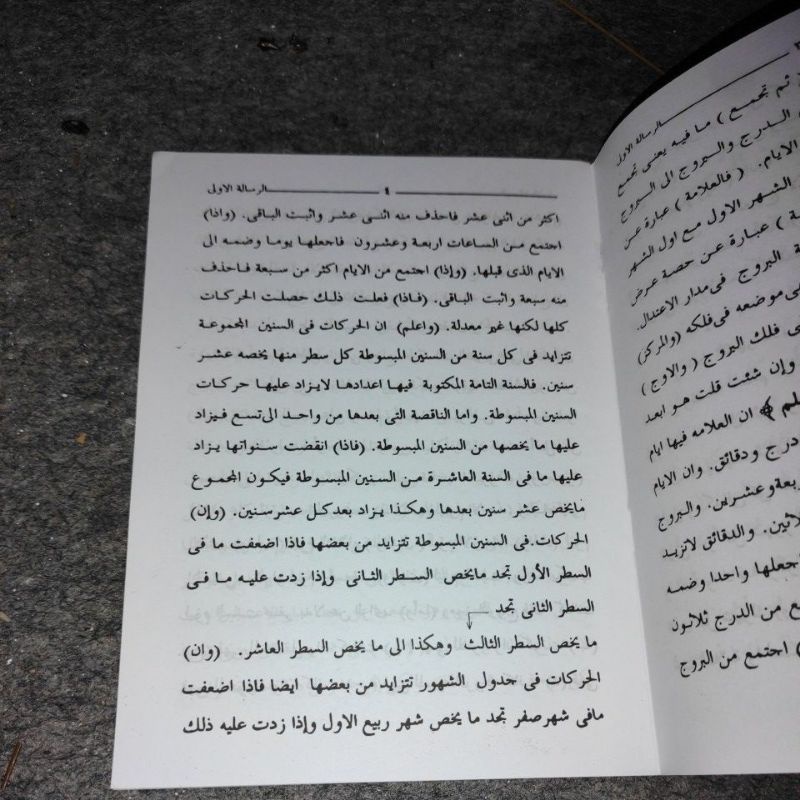 ثم تجمع ) ما فيه يعنى تجمع
الدرج والبروج الى البروج
الايام. ( فالعلامة ) عبارة عن
الشهر الاول مع اول الشهر
) عبارة عن حصة عرض
البروج فى مدار الاعتدال
موضعه فى فلكه (والمركز)
فلك البروج ( والاوج )
وإن شئت قلت هو ابعد
ان العلامه فيها ايام
درج ودقائق. وان الايام
والبروج
والدقائق لاتزيد
اجعلها واحدا وضمه
من الدرج ثلاثون
) اجتمع من البروج
الرسالة الاولى
٤
الرسالة الاولى
اكثر من اثنى عشر فاحذف منه اثنى عشر واثبت الباقى. (واذا)
اجتمع من الساعات اربعة وعشرون فاجعلها يوما وضمه الى
الايام الذى قبلها. (وإذا) اجتمع من الايام اكثر من سبعة فاحذف
منه سبعة واثبت الباقى. (فاذا) فعلت ذلك حصلت الحركات
كلها لكنها غير معدلة. (واعلم) ان الحركات فى السنين المجموعة
تتزايد فى كل سنة من السنين المبسوطة كل سطر منها يخصه عشر
سنين. فالسنة التامة المكتوبة فيها اعدادها لايزاد عليها حركات
السنين المبسوطة. واما الناقصة التى بعدها من واحد الى تسع فيزاد
عليها ما يخصها من السنين المبسوطة. (فاذا) انقضت سنواتها يزاد
عليها ما فى السنة العاشرة من السنين المبسوطة فيكون المجموع
مايخص عشر سنين بعدها وهكذا يزاد بعدكل عشرسنين. (وإن)
الحركات.فى السنين المبسوطة تتزايد من بعضها فاذا اضعفت ما فى
السطر الأول تجد مايخص السطر الثانى وإذا زدت عليه ما فى
السطر الثانى تجد
ما يخص السطر الثالث وهكذا الى ما يخص السطر العاشر. (وان)
الحركات فى جدول الشهور تتزايد من بعضها ايضا فاذا اضعفت
مافى شهرصفر تجد ما يخص شهر ربيع الاول وإذا زدت عليه ذلك